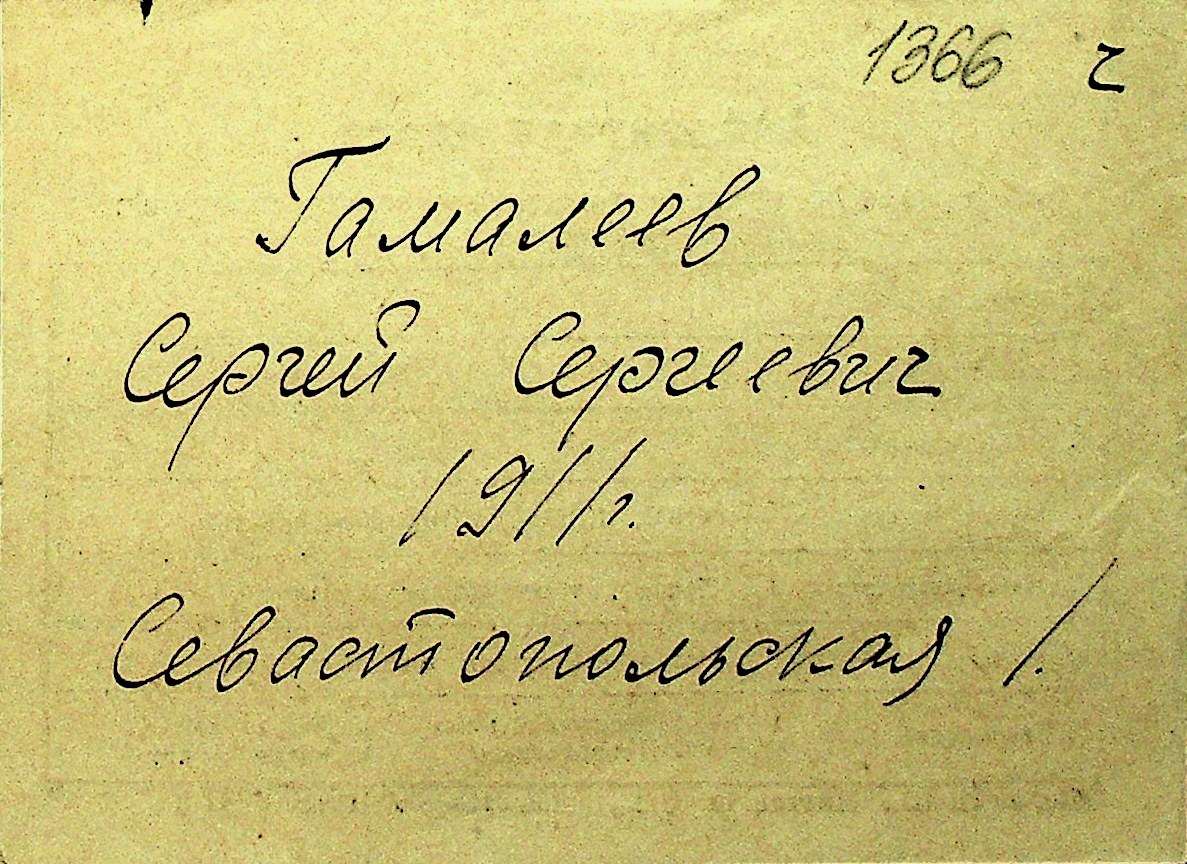 1366 г
Гамалеев
Сергей Сергеевич
1911г.
Севастопольская 1.